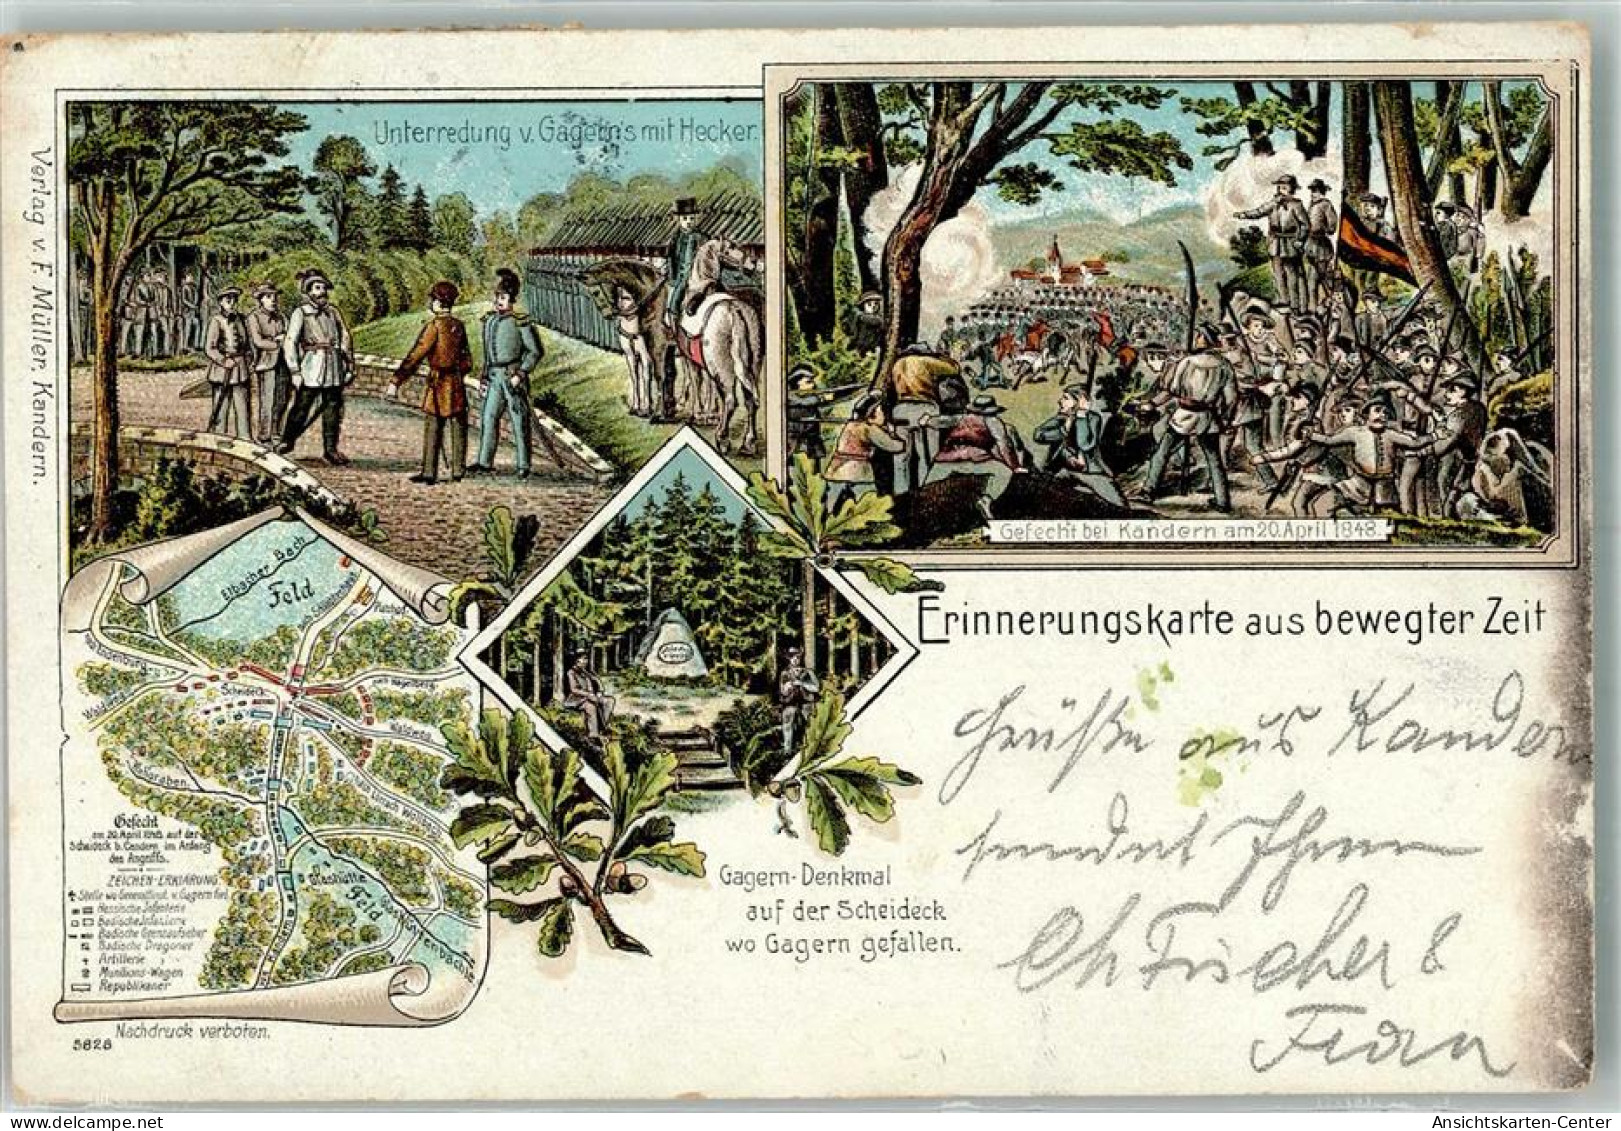 Verlag v. F. Müller, Kandern.
Unterredung v. Gagern's mit Hecker.
Gefecht bei Kandern am 20. April 1848.
Erinnerungskarte aus bewegter Zeit
Grüße aus Kandern
sendet Ihnen
Ch Fischer &
Frau
Gagern-Denkmal
auf der Scheideck
wo Gagern gefallen.
Elbacher Bach
Feld
Scheideck
Gefecht
am 20. April 1848 auf der
Scheideck b. Candern im Anfang
des Angriffs.
ZEICHEN-ERKLÄRUNG
Stelle wo v. Gagern fiel
Hessische Infanterie
Badische Infanterie
Badische
Badische Dragoner
Artillerie
Munitions-Wagen
Republikaner
Glashütte
Feld
Nachdruck verboten.
5828
Ansichtskarten-Center